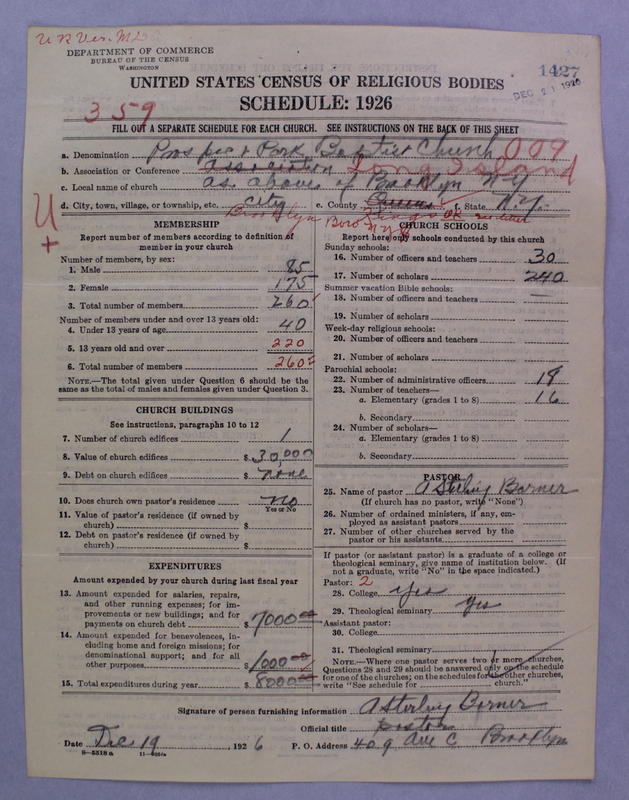 U R Ver. M
DEPARTMENT OF COMMERCE
BUREAU OF THE CENSUS
WASHINGTON
1427
DEC 21 1926
UNITED STATES CENSUS OF RELIGIOUS BODIES
SCHEDULE: 1926
359
FILL OUT A SEPARATE SCHEDULE FOR EACH CHURCH. SEE INSTRUCTIONS ON THE BACK OF THIS SHEET
a. Denomination Prospect Park Baptist Church 009
b. Association or Conference association Long Island
c. Local name of church as above of Brooklyn N Y
d. City, town, village, or township, etc. city e. County Queens f. State N.Y.
Brooklyn Boro Kings OK
N Y C
U
+
MEMBERSHIP
Report number of members according to definition of
member in your church
Number of members, by sex:
1. Male 85
2. Female 175
3. Total number of members 260
Number of members under and over 13 years old:
4. Under 13 years of age 40
5. 13 years old and over 220
6. Total number of members 260
NOTE.—The total given under Question 6 should be
the same as the total of males and females given under Question 3.
CHURCH BUILDINGS
See instructions, paragraphs 10 to 12
7. Number of church edifices 1
8. Value of church edifices $ 30,000
9. Debt on church edifices $ none
10. Does church own pastor's residence no
Yes or No
11. Value of pastor's residence (if owned by
church) $
12. Debt on pastor's residence (if owned by
church) $
EXPENDITURES
Amount expended by your church during last fiscal year
13. Amount expended for salaries, repairs,
and other running expenses; for im-
provements or new buildings; and for
payments on church debt $ 7000 00
14. Amount expended for benevolences, in-
cluding home and foreign missions; for
denominational support; and for all
other purposes $ 1000 00
15. Total expenditures during year $ 8000 00
CHURCH SCHOOLS
Report here only schools conducted by this church
Sunday schools:
16. Number of officers and teachers 30
17. Number of scholars 240
Summer vacation Bible schools:
18. Number of officers and teachers
19. Number of scholars
Week-day religious schools:
20. Number of officers and teachers
21. Number of scholars
Parochial schools:
22. Number of administrative officers 19
23. Number of teachers—
a. Elementary (grades 1 to 8) 16
b. Secondary
24. Number of scholars—
a. Elementary (grades 1 to 8)
b. Secondary
PASTOR
25. Name of pastor A Sterling Barner
(If church has no pastor, write "None")
26. Number of ordained ministers, if any, em-
ployed as assistant pastors
27. Number of other churches served by the
pastor or his assistants
If pastor (or assistant pastor) is a graduate of a college or
theological seminary, give name of institution below. (If
not a graduate, write "No" in the space indicated.)
Pastor: 2
28. College yes
29. Theological seminary yes
Assistant pastor:
30. College
31. Theological seminary
NOTE.—Where one pastor serves two or more churches,
Questions 28 and 29 should be answered only on the schedule
for one of the churches; on the schedules for the other churches,
write "See schedule for church."
Signature of person furnishing information A Sterling Barner
Official title pastor
Date Dec 19 1926 P. O. Address 409 Ave C Brooklyn
8—5518a